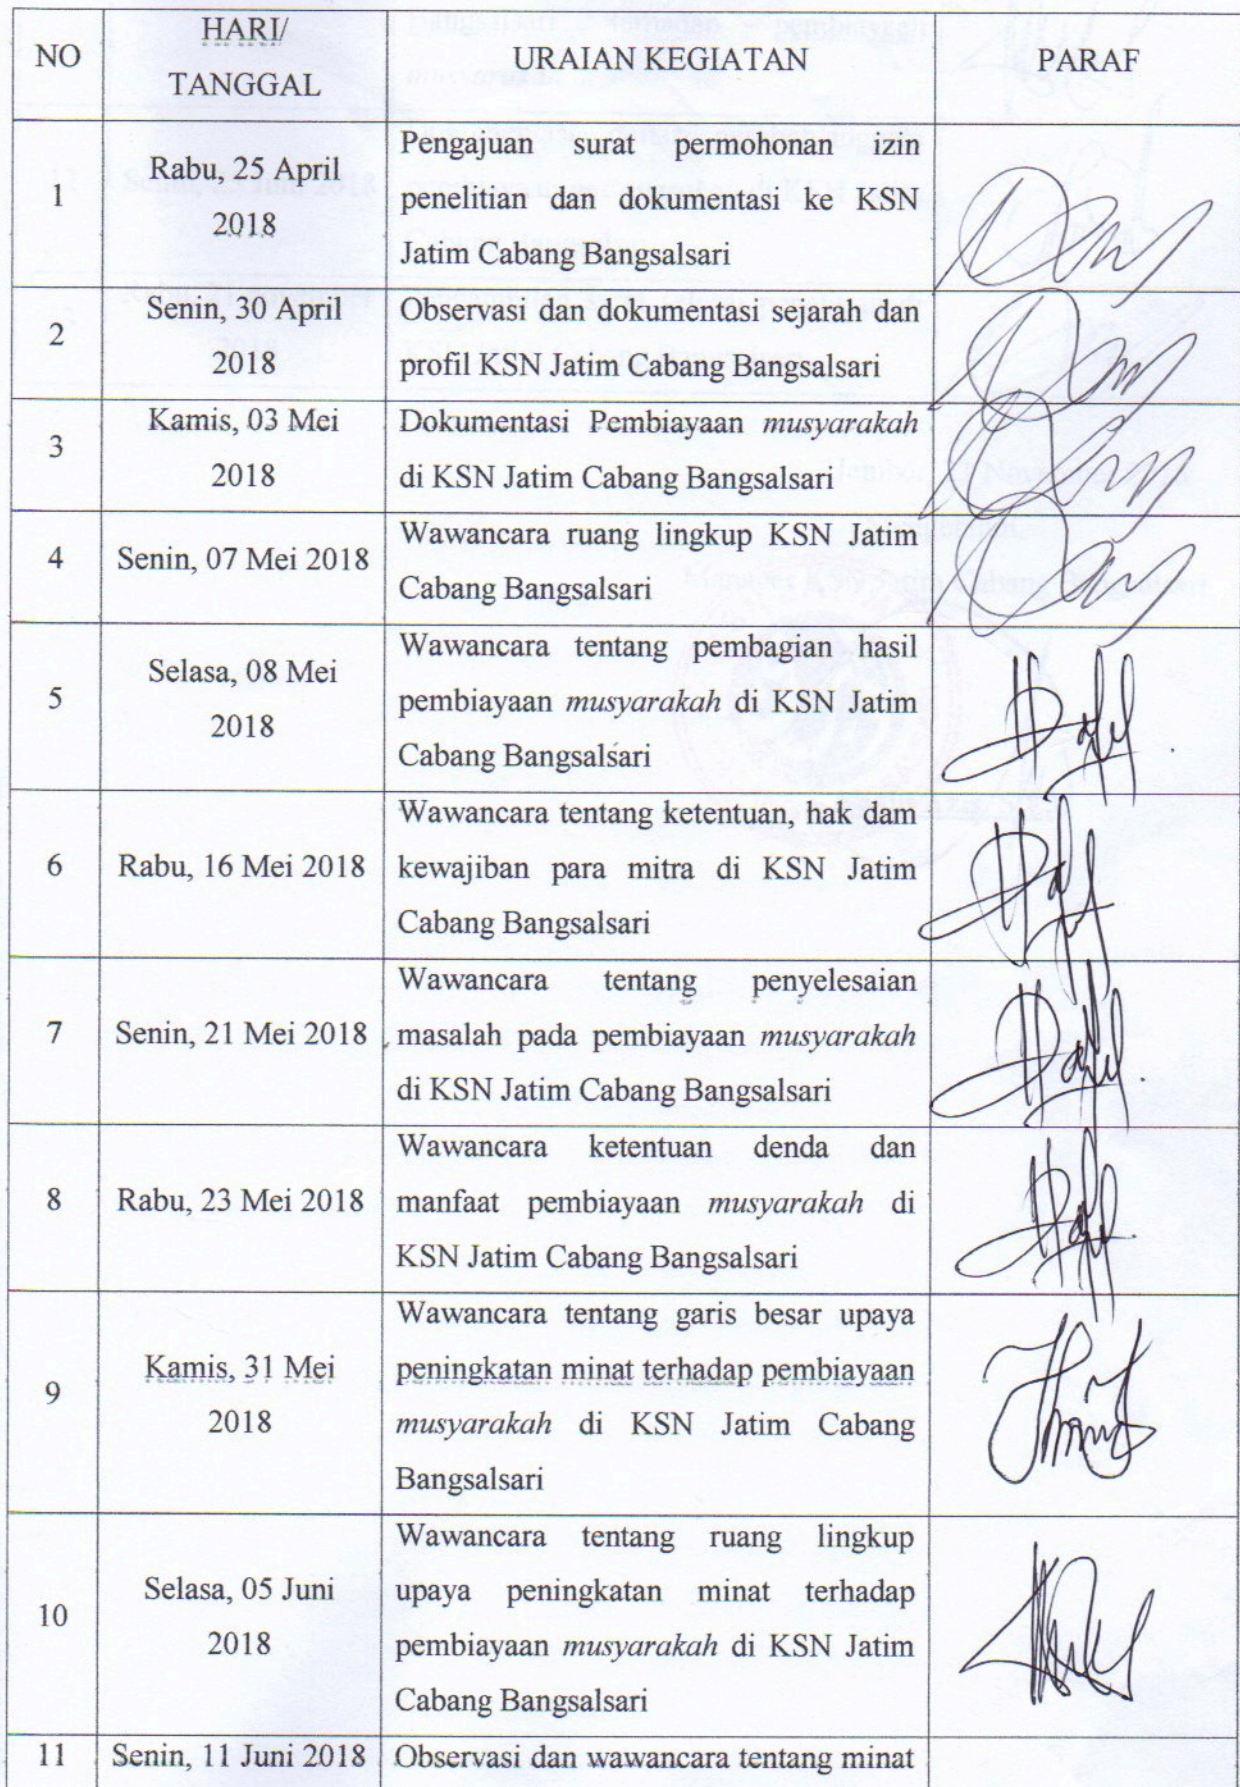 NO
HARI/
TANGGAL
URAIAN KEGIATAN
PARAF
1
Rabu, 25 April
2018
Pengajuan surat permohonan izin
penelitian dan dokumentasi ke KSN
Jatim Cabang Bangsalsari
2
Senin, 30 April
2018
Observasi dan dokumentasi sejarah dan
profil KSN Jatim Cabang Bangsalsari
3
Kamis, 03 Mei
2018
Dokumentasi Pembiayaan musyarakah
di KSN Jatim Cabang Bangsalsari
4
Senin, 07 Mei 2018
Wawancara ruang lingkup KSN Jatim
Cabang Bangsalsari
5
Selasa, 08 Mei
2018
Wawancara tentang pembagian hasil
pembiayaan musyarakah di KSN Jatim
Cabang Bangsalsari
6
Rabu, 16 Mei 2018
Wawancara tentang ketentuan, hak dam
kewajiban para mitra di KSN Jatim
Cabang Bangsalsari
7
Senin, 21 Mei 2018
Wawancara tentang penyelesaian
masalah pada pembiayaan musyarakah
di KSN Jatim Cabang Bangsalsari
8
Rabu, 23 Mei 2018
Wawancara ketentuan denda dan
manfaat pembiayaan musyarakah di
KSN Jatim Cabang Bangsalsari
9
Kamis, 31 Mei
2018
Wawancara tentang garis besar upaya
peningkatan minat terhadap pembiayaan
musyarakah di KSN Jatim Cabang
Bangsalsari
10
Selasa, 05 Juni
2018
Wawancara tentang ruang lingkup
upaya peningkatan minat terhadap
pembiayaan musyarakah di KSN Jatim
Cabang Bangsalsari
11
Senin, 11 Juni 2018
Observasi dan wawancara tentang minat